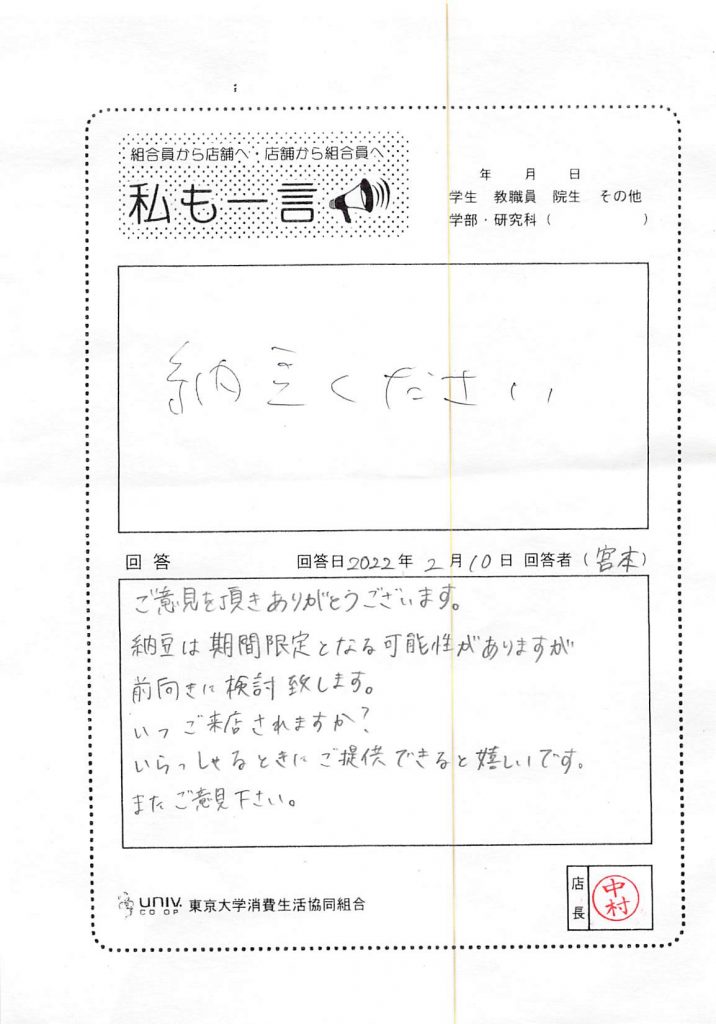 組合員から店舗へ・店舗から組合員へ
私も一言
年 月 日
学生 教職員 院生 その他
学部・研究科（ ）
納豆ください
回答 回答日2022年2月10日 回答者（宮本）
ご意見を頂きありがとうございます。
納豆は期間限定となる可能性がありますが
前向きに検討致します。
いつご来店されますか？
いらっしゃるときにご提供できると嬉しいです。
またご意見下さい。
UNIV. CO-OP 東京大学消費生活協同組合
店長 中村